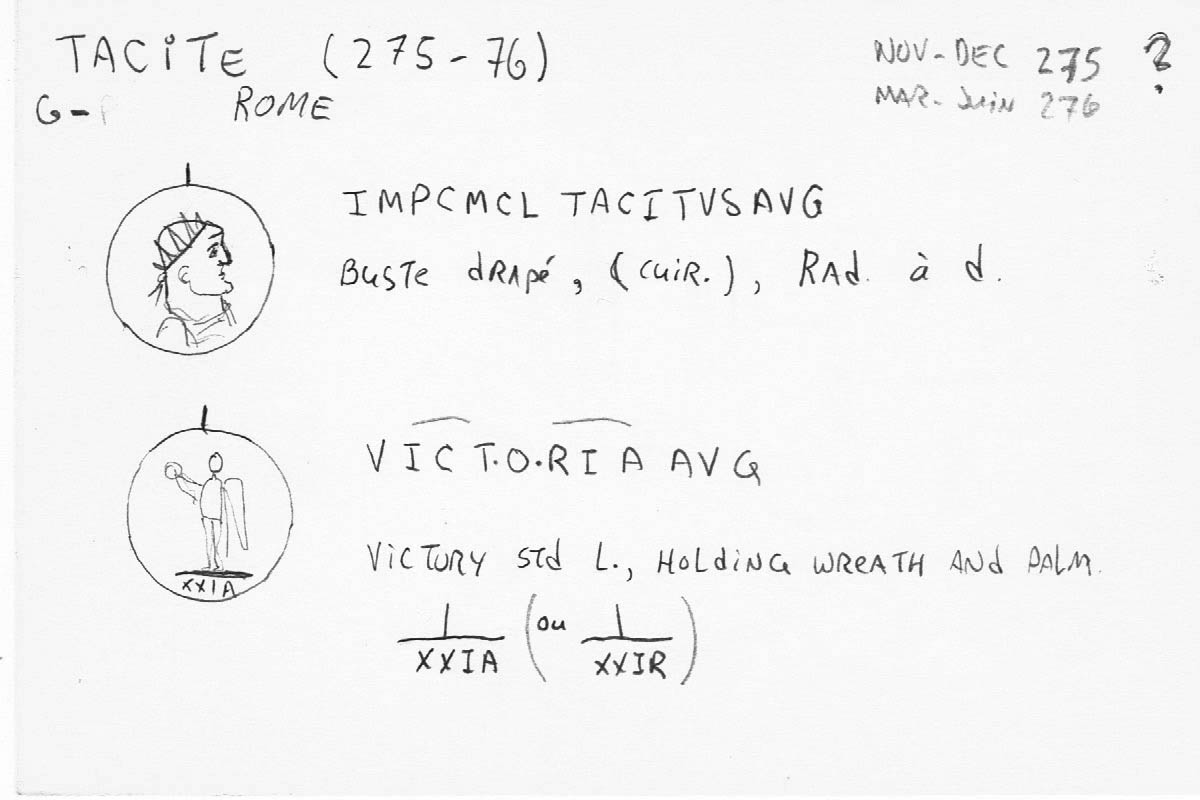 TACITE (275-76)
NOV-DEC 275 ?
MAR-JUIN 276
G- ROME
IMPCMCL TACITVSAVG
BUSTE dRAPé, (CUIR.), RAd. à d.
VICT.O.RIA AVG
VICTORY STd L., HOLdING WREATH ANd PALM.
XXIA
XXIA (ou XXIR)